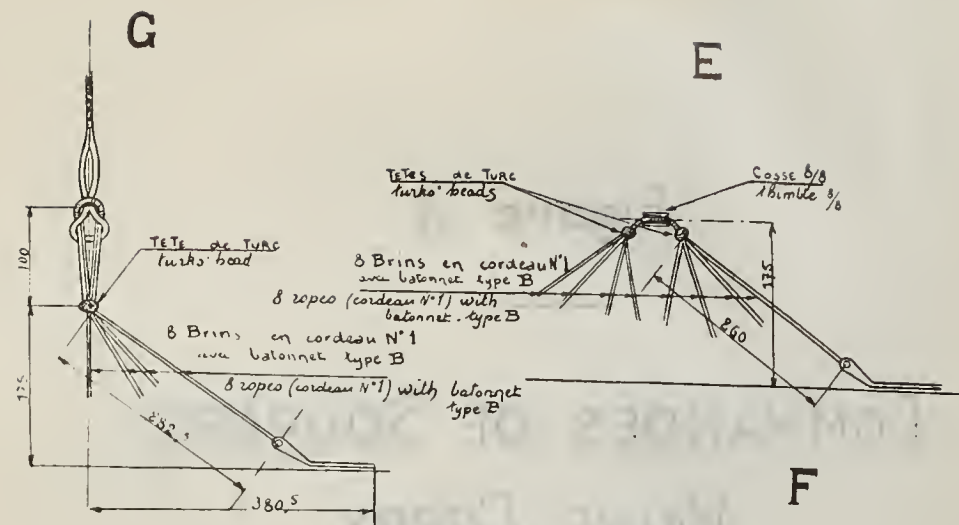 G
E
TETES de TURC
turks' heads
COSSE 8/8
thimble 8/8
TETE de TURC
turks' head
100
8 Brins en cordeau N°1
avec batonnet type B
8 ropes (cordeau N°1) with
batonnet type B
175
260
8 Brins en cordeau N°1
avec batonnet type B
8 ropes (cordeau N°1) with batonnet
type B
175
282.
380.5
F